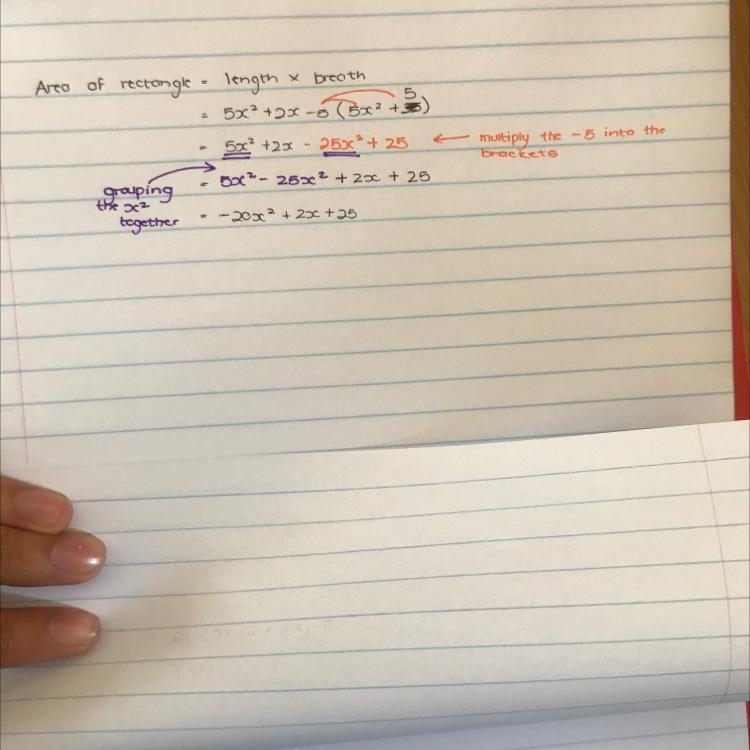 Area of rectangle = length × breath
= 5x² + 2x - 5 (5x² + 5)
= 5x² + 2x - 25x² + 25 ← multiply the -5 into the brackets
grouping the x² together
= 5x² - 25x² + 2x + 25
= -20x² + 2x + 25